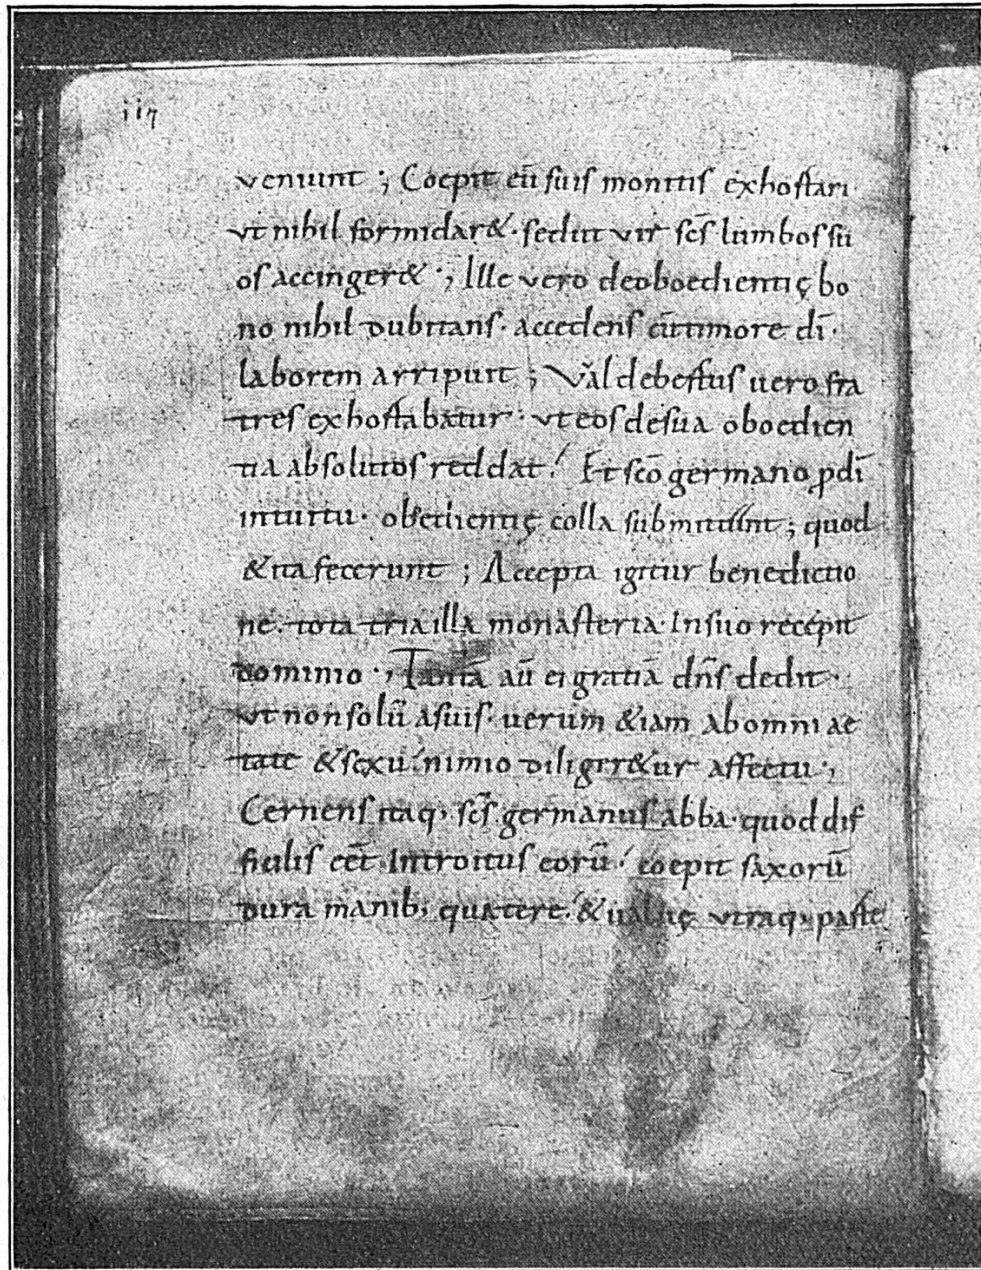 iiij
veniunt ; Coepit eū suis monitis exhortari·
vt nihil formidar&· sed ut vir sc̄s lumbos su
os accinger& ·; Ille vero de oboedientię bo
no nihil dubitans· accedens cū timore dī·
laborem arripuit ; Valdebertus uero fra
tres exhortabatur· vt eos de sua oboedien
tia absolutos reddat ! Et sc̄o germano p dī
intuitu· obedientię colla submittunt ; quod
& ita fecerunt ; Accepta igitur benedictio
ne· tota tria illa monasteria· In suo recepit
dominio ·; Tantā aū ei gratiā dn̄s dedit·
vt non solū a suis· uerum &iam ab omni ae
tate & sexu! nimio diliger&ur affectu·;
Cernens itaq; sc̄s germanus abba· quod dif
ficilis eēt Introitus eorū! coepit saxorū
dura manib; quatere! & uallię vtraq; parte